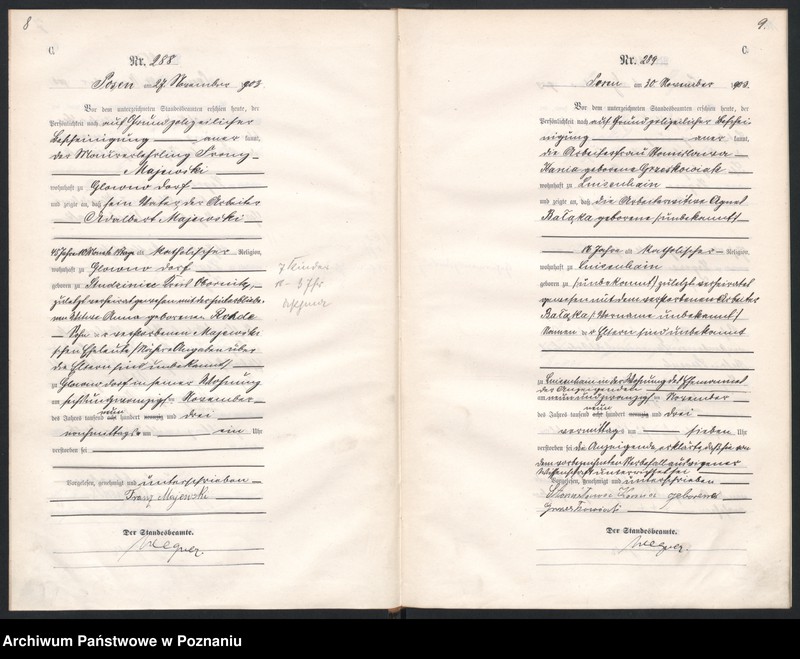 8
C.
Nr. 288
Posen am 27. November 1903.
Vor dem unterzeichneten Standesbeamten erschien heute, der
Persönlichkeit nach auf Grund polizeilicher
Bescheinigung aner kannt,
der Maurerlehrling Franz
Majewski
wohnhaft zu Glowno Dorf
und zeigte an, daß sein Vater der Arbeiter
Adalbert Majewski
45 Jahre 10 Monate alt katholischer Religion,
wohnhaft zu Glowno Dorf
geboren zu Kreis Obornik,
zuletzt verheiratet gewesen mit der
Anna geborenen Rohde
Sohn der verstorbenen Majewski
schen Eheleute /: Nähere Angaben über
die Eltern sind unbekannt :/
zu Glowno Dorf in seiner Wohnung
am sechsundzwanzigsten November
des Jahres tausend neun hundert und drei
nachmittags um ein Uhr
verstorben sei
Vorgelesen, genehmigt und unterschrieben
Franz Majewski
Der Standesbeamte.
7 Kinder
9.
C.
Nr. 289
Posen am 30. November 1903.
Vor dem unterzeichneten Standesbeamten erschien heute, der
Persönlichkeit nach auf Grund polizeilicher Beschei-
nigung aner kannt,
die Arbeiterfrau Stanislawa
Kania geborene Grzeskowiak
wohnhaft zu Luisenhain
und zeigte an, daß die Arbeiterwitwe Agnes
Bałąka geborene /: unbekannt :/
Jahre alt katholischer Religion,
wohnhaft zu Luisenhain
geboren zu /: unbekannt :/ zuletzt verheiratet
gewesen mit dem verstorbenen Arbeiter
Bałąka /: Vorname unbekannt :/
Namen der Eltern sind unbekannt
zu Luisenhain in der Wohnung des Ehemannes
der Anzeigenden
am neunundzwanzigsten November
des Jahres tausend neun hundert und drei
vormittags um sieben Uhr
verstorben sei. die Anzeigende erklärte, daß sie von
dem vorbezeichneten Sterbefall aus eigener
Wissenschaft unterrichtet sei
Vorgelesen, genehmigt und unterschrieben
Stanisława Kania geborene
Grzeskowiak
Der Standesbeamte.
Archiwum Państwowe w Poznaniu